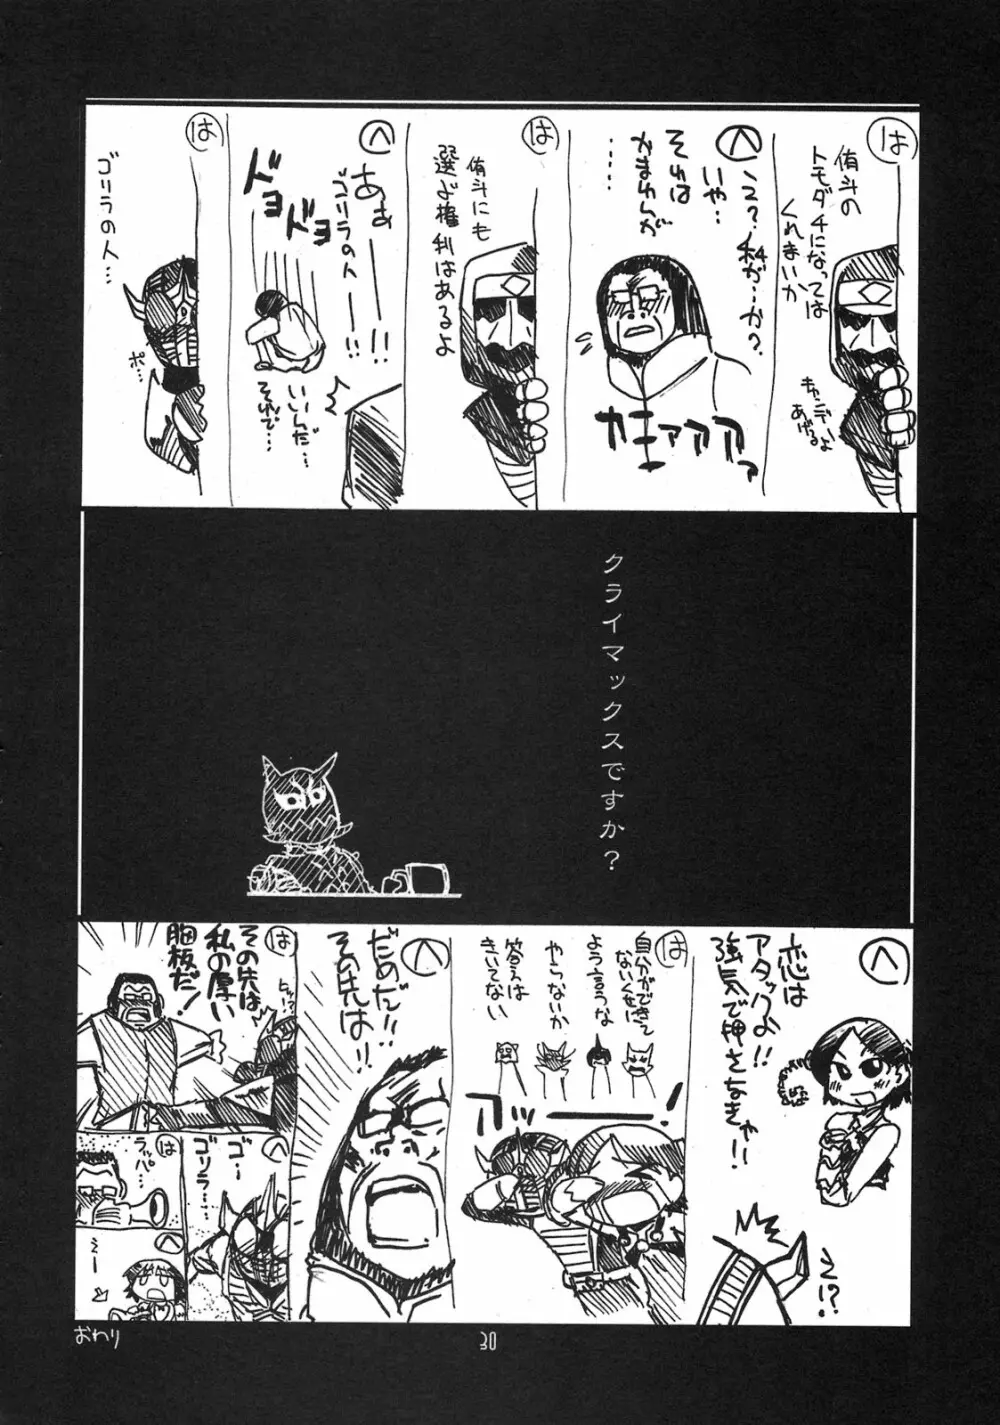 は
侑斗の
トモダチになっては
くれまいか
キャンディーよ
あげる
へ
え?私が…か?
いや…
それは
かまわんが
……
カアァァァァ
は
侑斗にも
選ぶ権利はあるよ
へ
あぁ———!!
ゴリラの人——!!
ドヨドヨ
いいんだ…
それで…
は
ゴリラの人…
ポ…
クライマックスですか?
へ
恋は
アタックよ!!
強気で押さなきゃ!!
え!?
は
自分ができて
ないくせに
よう言うな
やらないか
答えは
きいてない
アッ——!
へ
だめだ!!
その先は!!
は
その先は
私の厚い
胸板だ!
へ
ゴー
ゴリラ…
は
ラッパ…
へ
えー
おわり
30